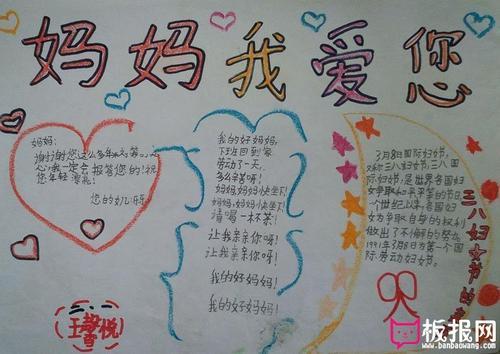 妈妈我爱您
妈妈:
谢谢您这么多年
心我一定会报答您的!祝
您年轻漂亮!
您的女儿
我的好妈妈,
下班回到家,
劳动了一天,
多么辛苦呀!
妈妈,妈妈快坐下!
妈妈,妈妈快坐下!
请喝一杯茶!
让我亲亲你呀!
让我亲亲你呀!
我的好妈妈!
我的好妈妈!
3月8日国际妇女节,
又称三八妇女节三八国
际妇女节,是世界各国妇
女争取和平平等的节日。
一个世纪以来,各国妇
女为争取自身的权利
做出了不懈的努力。
1991年3月8日为第一个国
际劳动妇女节。
三八妇女节的
二.一
王馨悦
板报网
www.banbaowang.com